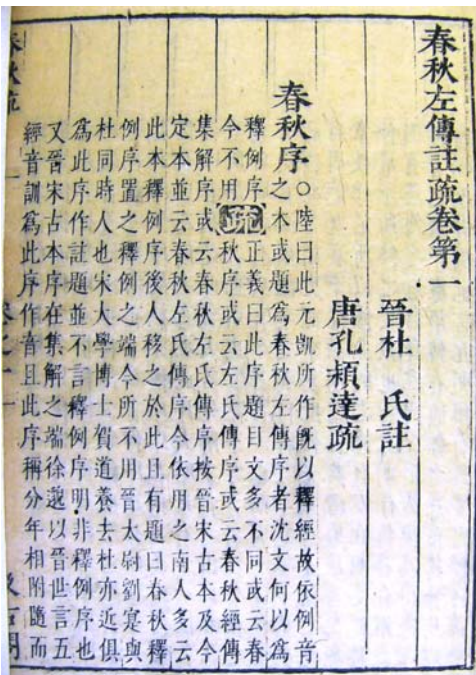 春秋左傳註疏卷第一
晉杜 氏註
唐孔穎達疏
春秋序○陸曰此元凱所作旣以釋經故依例音
之本或題爲春秋左傳序者沈文何以爲
釋例序今不用疏正義曰此序題目文多不同或云春
秋序或云左氏傳序或云春秋經傳
集解序或云春秋左氏傳序按晉宋古本及今
定本並云春秋左氏傳序今依用之南人多云
此本釋例序後人移之於此且有題曰春秋釋
例序置之釋例之端今所不用晉太尉劉寔與
杜同時人也宋大學博士賀道養去杜亦近俱
爲此序作註題並不言釋例序明非釋例序也
又晉宋古本序在集解之端徐邈以晉世言五
經音訓爲此序作音且此序稱分年相附隨而
春秋疏